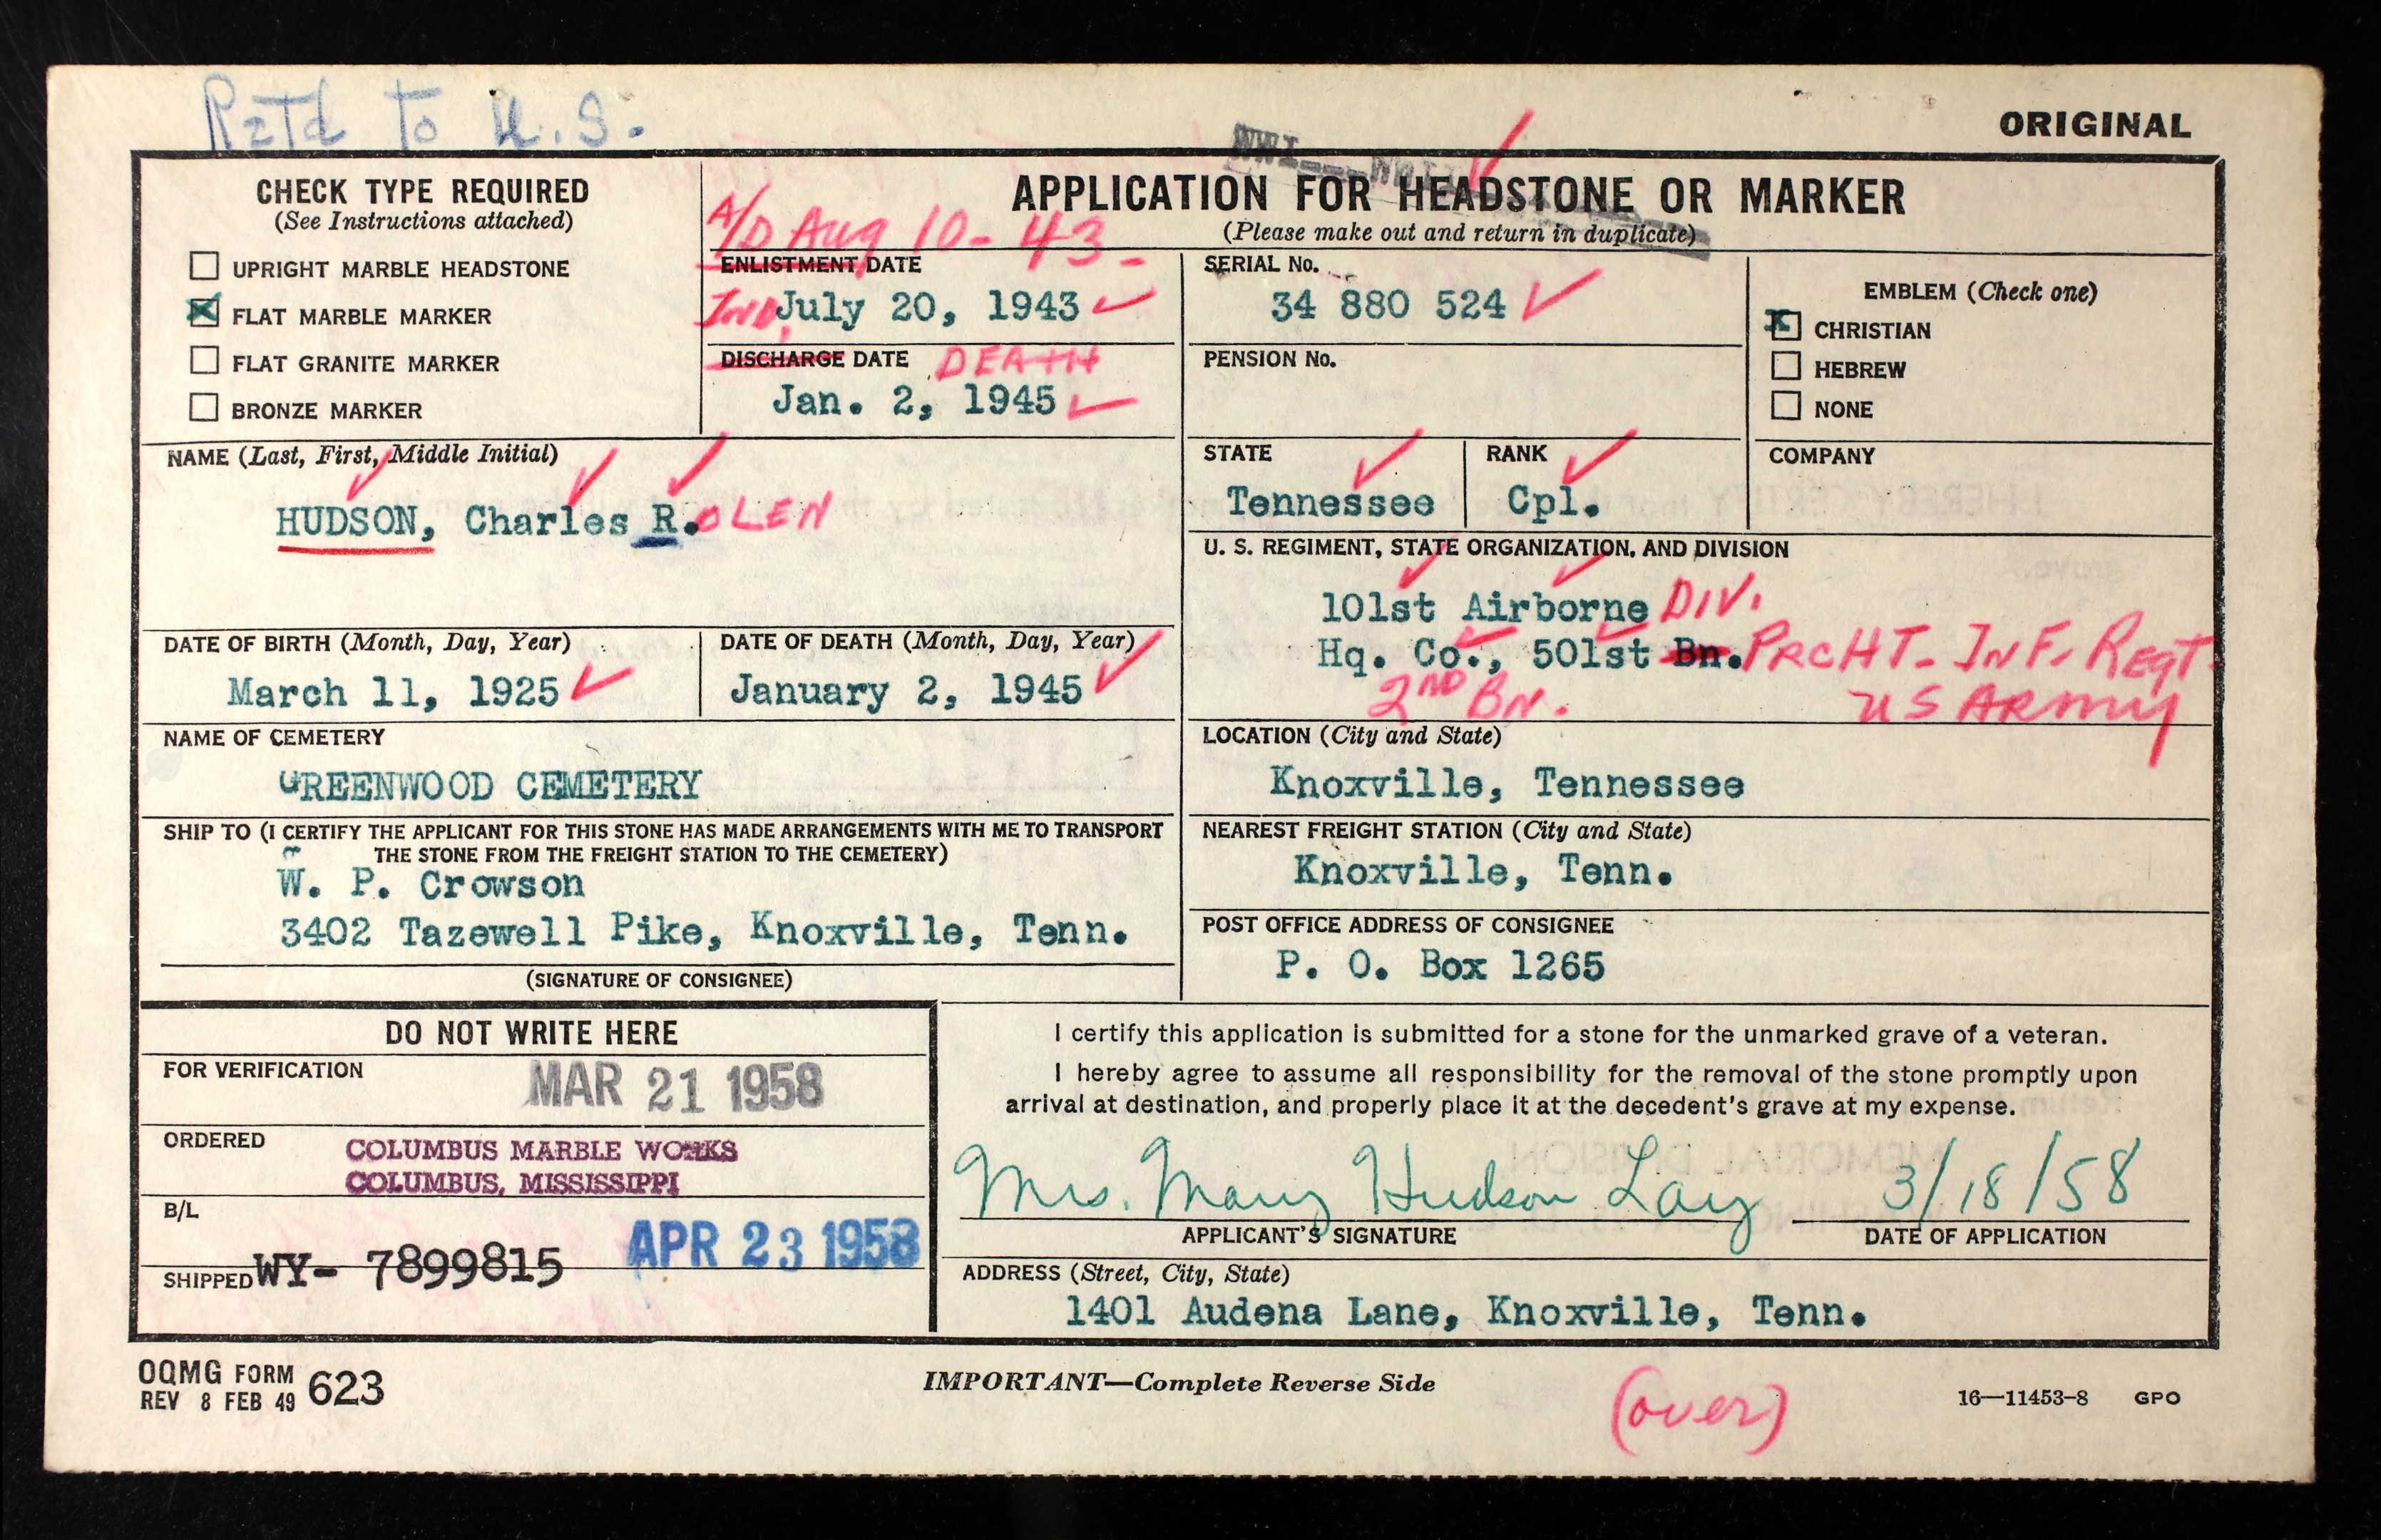 Retd to U.S.
ORIGINAL
CHECK TYPE REQUIRED
(See Instructions attached)
UPRIGHT MARBLE HEADSTONE
FLAT MARBLE MARKER
FLAT GRANITE MARKER
BRONZE MARKER
APPLICATION FOR HEADSTONE OR MARKER
(Please make out and return in duplicate)
A/D Aug 10-43-
ENLISTMENT DATE
Ind. July 20, 1943
DISCHARGE DATE DEATH
Jan. 2, 1945
SERIAL No.
34 880 524
PENSION No.
EMBLEM (Check one)
CHRISTIAN
HEBREW
NONE
NAME (Last, First, Middle Initial)
HUDSON, Charles R. OLEN
STATE
Tennessee
RANK
Cpl.
COMPANY
U. S. REGIMENT, STATE ORGANIZATION, AND DIVISION
101st Airborne DIV.
Hq. Co., 501st Bn. PRCHT. INF. Regt.
2ND BN. US ARMY
DATE OF BIRTH (Month, Day, Year)
March 11, 1925
DATE OF DEATH (Month, Day, Year)
January 2, 1945
NAME OF CEMETERY
GREENWOOD CEMETERY
LOCATION (City and State)
Knoxville, Tennessee
SHIP TO (I CERTIFY THE APPLICANT FOR THIS STONE HAS MADE ARRANGEMENTS WITH ME TO TRANSPORT
THE STONE FROM THE FREIGHT STATION TO THE CEMETERY)
W. P. Crowson
3402 Tazewell Pike, Knoxville, Tenn.
(SIGNATURE OF CONSIGNEE)
NEAREST FREIGHT STATION (City and State)
Knoxville, Tenn.
POST OFFICE ADDRESS OF CONSIGNEE
P. O. Box 1265
DO NOT WRITE HERE
FOR VERIFICATION
MAR 21 1958
ORDERED
COLUMBUS MARBLE WORKS
COLUMBUS, MISSISSIPPI
B/L
APR 23 1958
SHIPPED WY- 7899815
I certify this application is submitted for a stone for the unmarked grave of a veteran.
I hereby agree to assume all responsibility for the removal of the stone promptly upon
arrival at destination, and properly place it at the decedent's grave at my expense.
Mrs. Mary Hudson Lay 3/18/58
APPLICANT'S SIGNATURE
DATE OF APPLICATION
ADDRESS (Street, City, State)
1401 Audena Lane, Knoxville, Tenn.
OQMG FORM 623
REV 8 FEB 49
IMPORTANT—Complete Reverse Side
(over)
16—11453-8 GPO